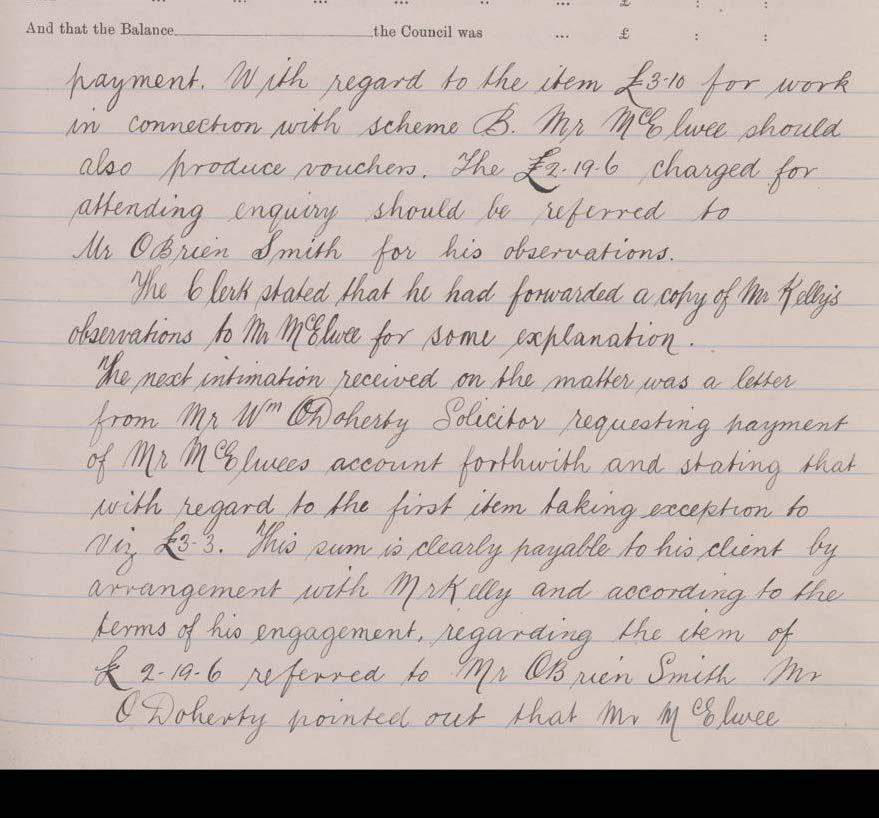 ... ... ... ... ... ... £ : :
And that the Balance____________________the Council was ... £ : :
payment. With regard to the item £3-10 for work
in connection with scheme B. Mr McElwee should
also produce vouchers. The £2-19-6 charged for
attending enquiry should be referred to
Mr OBrien Smith for his observations.
The Clerk stated that he had forwarded a copy of Mr Kelly's
observations to Mr McElwee for some explanation.
The next intimation received on the matter was a letter
from Mr Wm ODoherty Solicitor requesting payment
of Mr McElwees account forthwith and stating that
with regard to the first item taking exception to
viz £3-3. This sum is clearly payable to his client by
arrangement with Mr Kelly and according to the
terms of his engagement, regarding the item of
£2-19-6 referred to Mr OBrien Smith Mr
ODoherty pointed out that Mr McElwee